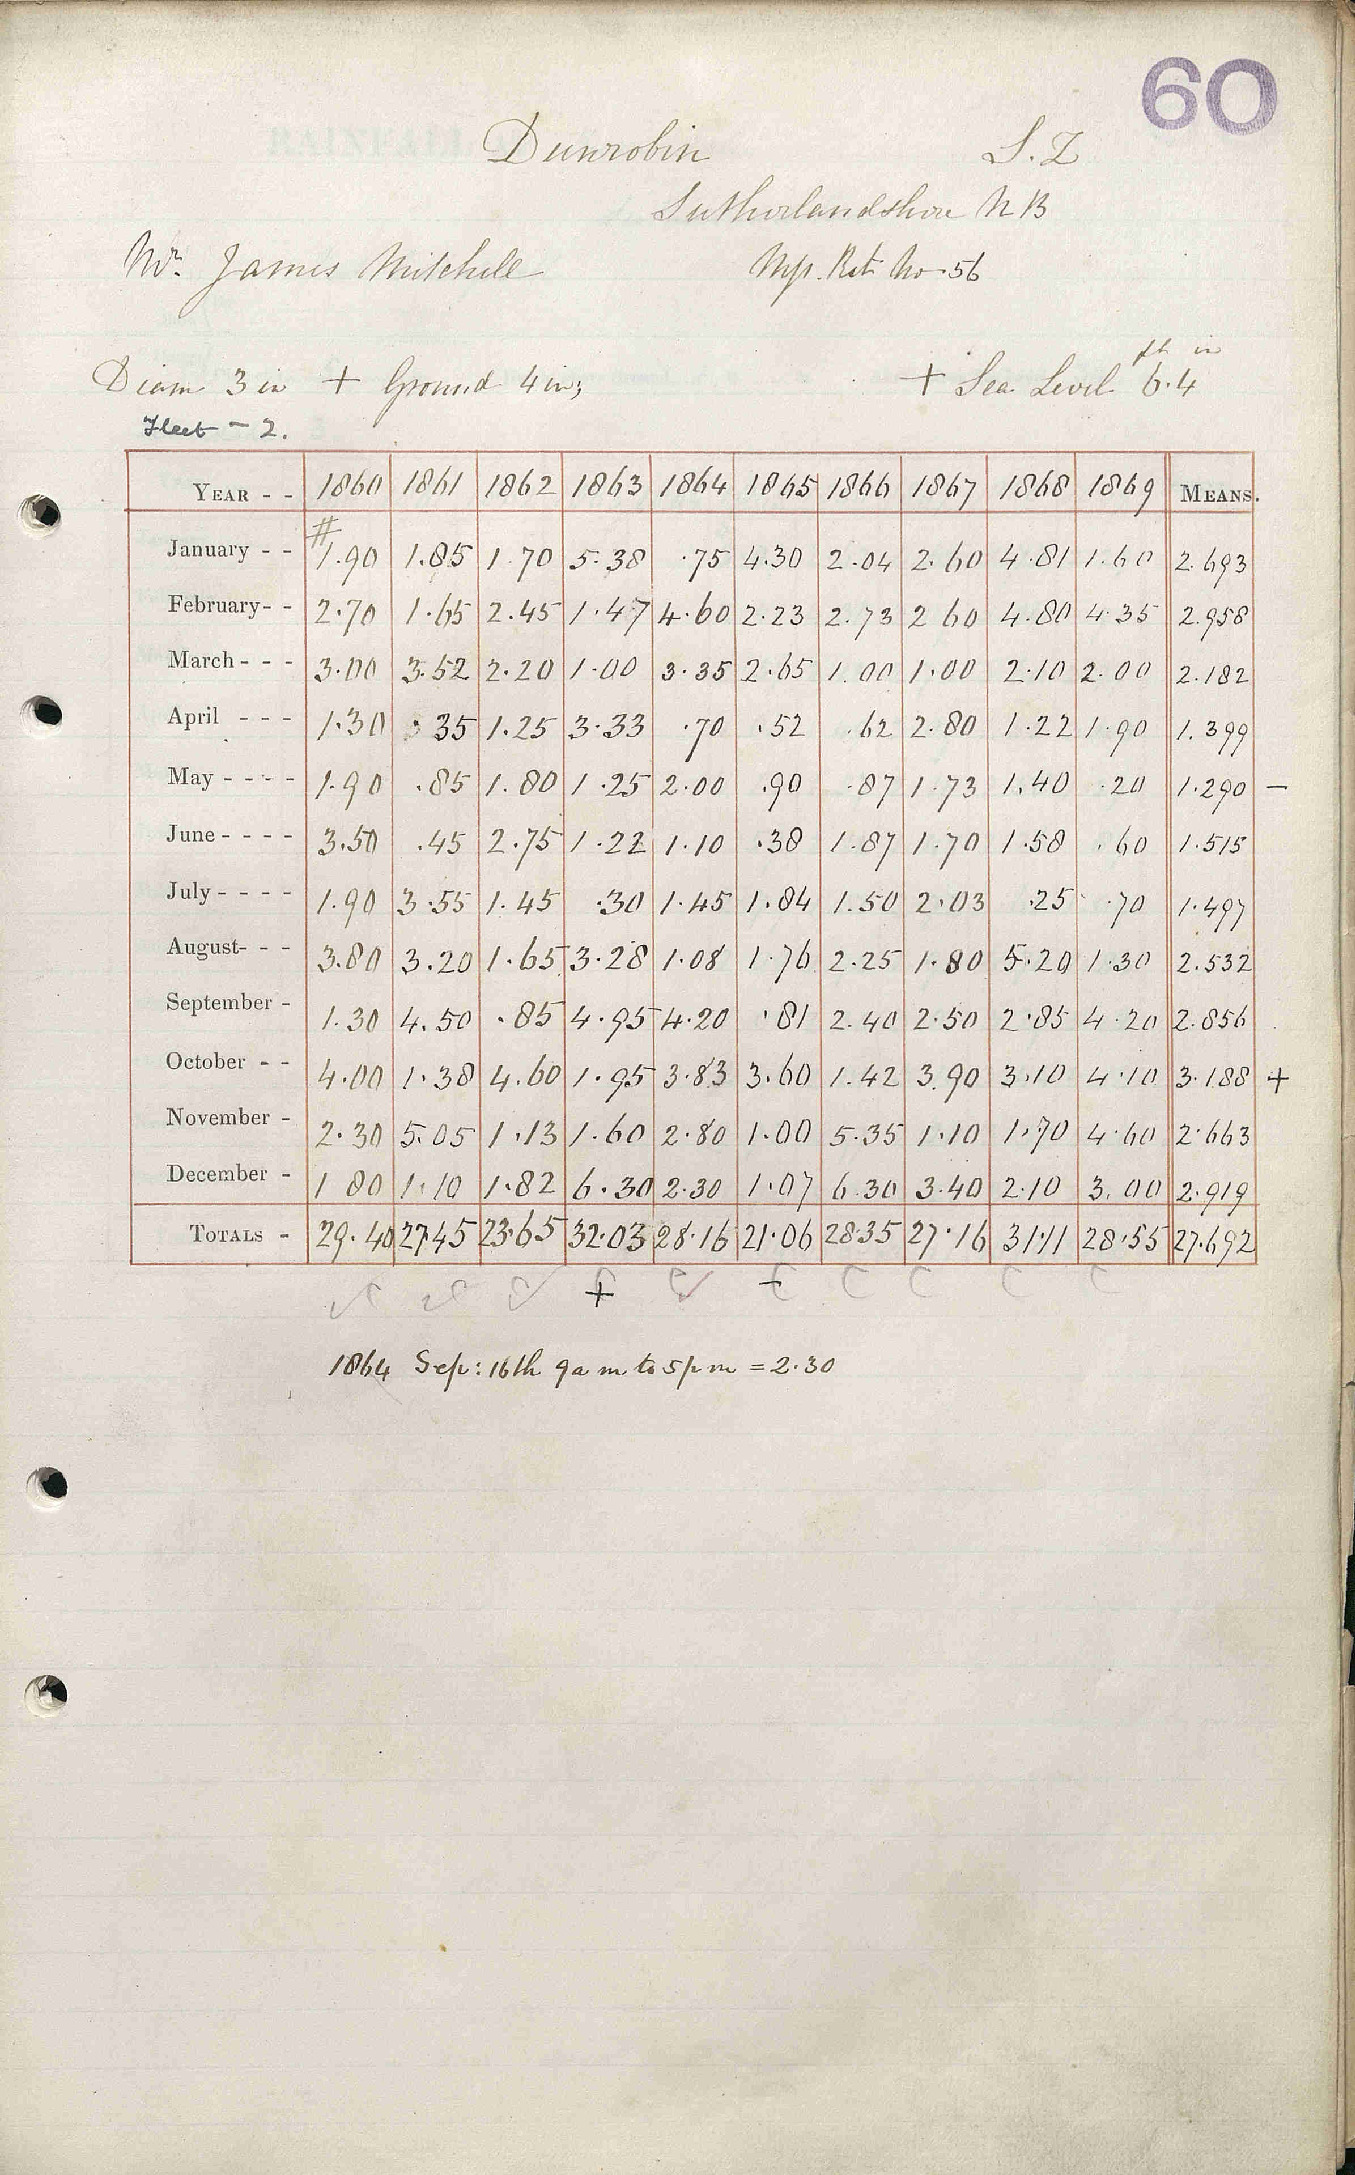 60
Dunrobin S. Z
Sutherlandshire N B
Mr. James Mitchell Mp. Ret No. 56
ft in
Diam 3 in + Ground 4 in; + Sea Level 6.4
Fleet - 2.
YEAR - - 1860 1861 1862 1863 1864 1865 1866 1867 1868 1869 MEANS.
#
January - - 1.90 1.85 1.70 5.38 .75 4.30 2.04 2.60 4.81 1.60 2.693
February- - 2.70 1.65 2.45 1.47 4.60 2.23 2.73 2 60 4.80 4.35 2.958
March - - - 3.00 3.52 2.20 1.00 3.35 2.65 1.00 1.00 2.10 2.00 2.182
April - - - 1.30 .35 1.25 3.33 .70 .52 .62 2.80 1.22 1.90 1.399
May - - - - 1.90 .85 1.80 1.25 2.00 .90 .87 1.73 1.40 .20 1.290 -
June - - - - 3.50 .45 2.75 1.22 1.10 .38 1.87 1.70 1.58 .60 1.515
July - - - - 1.90 3.55 1.45 .30 1.45 1.84 1.50 2.03 .25 .70 1.497
August- - - 3.80 3.20 1.65 3.28 1.08 1.76 2.25 1.80 5.20 1.30 2.532
September - 1.30 4.50 .85 4.95 4.20 .81 2.40 2.50 2.85 4.20 2.856
October - - 4.00 1.38 4.60 1.95 3.83 3.60 1.42 3.90 3.10 4.10 3.188 +
November - 2.30 5.05 1.13 1.60 2.80 1.00 5.35 1.10 1.70 4.60 2.663
December - 1 80 1.10 1.82 6.30 2.30 1.07 6.30 3.40 2.10 3.00 2.919
TOTALS - 29.40 27.45 23.65 32.03 28.16 21.06 28.35 27.16 31.11 28.55 27.692
+
1864 Sep: 16th 9 a m to 5 p m = 2.30